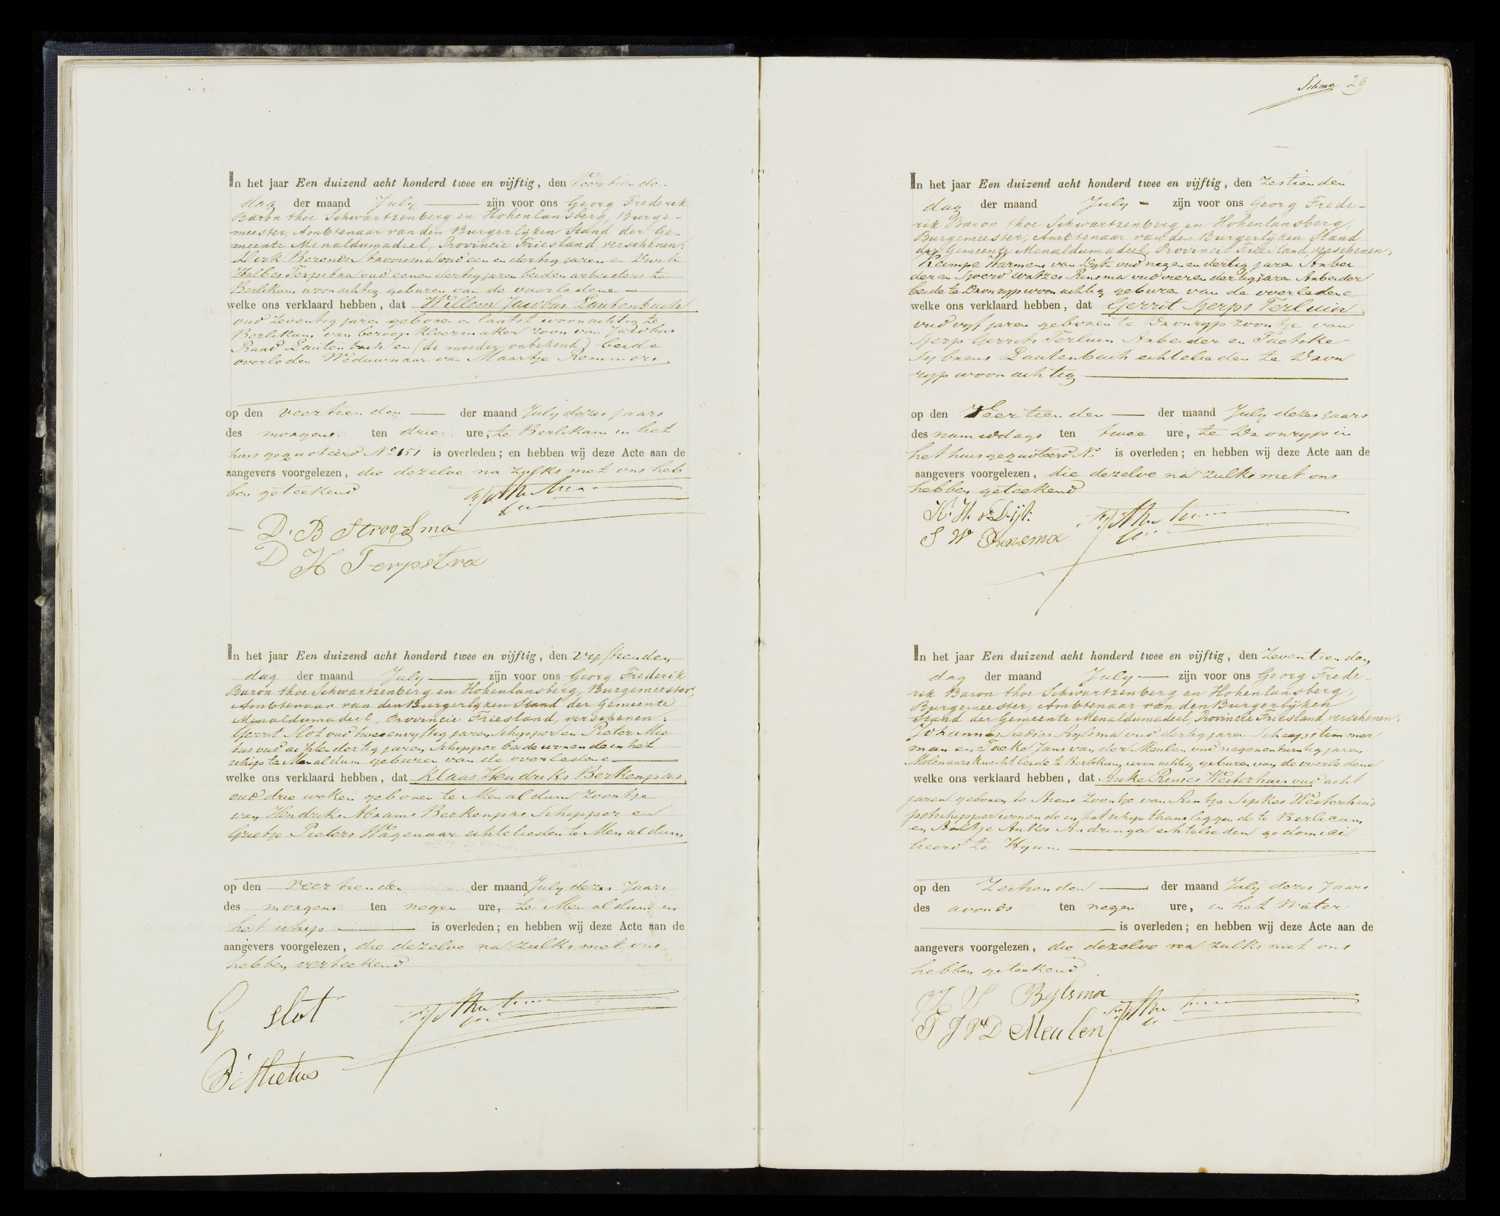 In het jaar Een duizend acht honderd twee en vijftig, den Veertienden
dag der maand July zijn voor ons Georg Frederik
Baron thoe Schwartzenberg en Hohenlansberg, Burge-
meester, Ambtenaar van den Burgerlyken Stand der Ge-
meente Menaldumadeel, Provincie Friesland verschenen:
Dirk Berends oud een en dertig jaren en Durk
Halbes Terpstra oud jaren beiden arbeiders te
Berlikum woonachtig geburen van de overledene
welke ons verklaard hebben, dat Willem Jacobus Lautenbach
oud zeventig jaren geboren woonachtig te
Berlikum van beroep Kleermaker zoon van Jacobus
Lautenbach en (de moeder onbekend) beide
overleden Weduwnaar van Maartje
op den veertienden der maand July dezes jaars
des morgens ten drie ure, te Berlikum in het
huis gequoteerd No 151 is overleden; en hebben wij deze Acte aan de
aangevers voorgelezen, die dezelve na zulks met ons heb
ben geteekend
D. B Stroosma
D H Terpstra
In het jaar Een duizend acht honderd twee en vijftig, den vyftienden
dag der maand July zijn voor ons Georg Frederik
Baron thoe Schwartzenberg en Hohenlansberg, Burgemeester,
Ambtenaar van den Burgerlyken Stand der Gemeente
Menaldumadeel, Provincie Friesland, verschenen:
Gerrit Slot oud twee en vyftig jaren Schipper en Pieter
oud dertig jaren, Schipper beide wonende in het
schip te Menaldum geburen van de overledene
welke ons verklaard hebben, dat Klaas Hendriks Berkenpas
oud drie weken geboren te Menaldum zoontje
van Hendrik Abrams Berkenpas Schipper en
Grietje Pieters Wagenaar echtelieden te Menaldum
op den veertienden der maand July dezes jaars
des morgens ten negen ure, te Menaldum in
het schip is overleden; en hebben wij deze Acte aan de
aangevers voorgelezen, die dezelve na zulks met ons
hebben geteekend
G slot
In het jaar Een duizend acht honderd twee en vijftig, den zestienden
dag der maand July zijn voor ons Georg Frede-
rik Baron thoe Schwartzenberg en Hohenlansberg,
Burgemeester, Ambtenaar van den Burgerlyken Stand
der Gemeente Menaldumadeel, Provincie Friesland verschenen,
Kampe Harmens van Dijk oud negen en dertig jaren Arbei
der en Sjoerd Watzes oud vier en dertig jaren Arbeider
beide te Dronryp woonachtig geburen van de overledene
welke ons verklaard hebben, dat Gerrit Gerps Terluin,
oud vyf jaren geboren te Dronryp zoontje van
Gerp Gerrits Terluin Arbeider en
Sybrens Lautenbach echtelieden te Dron
ryp woonachtig
op den Veertienden der maand July dezes jaars
des namiddags ten twee ure, te Dronryp in
het huis gequoteerd No is overleden; en hebben wij deze Acte aan de
aangevers voorgelezen, die dezelve na zulks met ons
hebben geteekend
K. H. v. Dijk.
S W
In het jaar Een duizend acht honderd twee en vijftig, den zeventienden
dag der maand July zijn voor ons Georg Frede-
rik Baron thoe Schwartzenberg en Hohenlansberg,
Burgemeester, Ambtenaar van den Burgerlyken
Stand der Gemeente Menaldumadeel, Provincie Friesland verschenen,
Johannes oud dertig jaren Scheepstimmer
man en Foeke Jans van der Meulen oud negenentwintig jaren
Molenaarsknecht beide te Berlikum woonachtig geburen van de overledene
welke ons verklaard hebben, dat Anke Rinses Westerhuis oud acht
jaren geboren te zoontje van Westerhuis
schipper wonende in het schip thans liggende te Berlicum
en Antje Ankes Andringa echtelieden gedomici
lieerd te Hyum.
op den Zestienden der maand July dezes jaars
des avonds ten negen ure, in het Water
is overleden; en hebben wij deze Acte aan de
aangevers voorgelezen, die dezelve na zulks met ons
hebben geteekend
Bylsma
F J v D Meulen